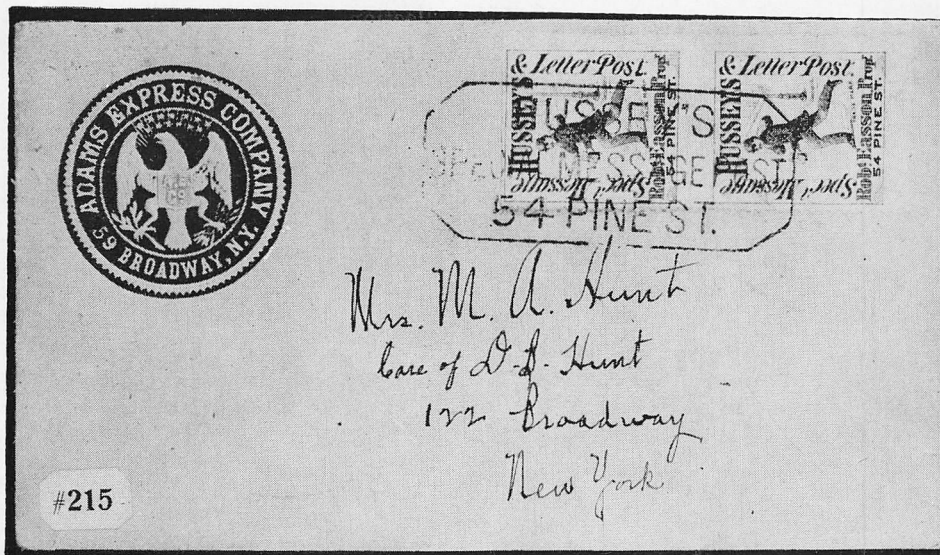 ADAMS EXPRESS COMPANY
59 BROADWAY, N.Y.
& Letter Post.
HUSSEY'S
Spec'l Message
Robt. Easson Prop.
54 PINE ST.
& Letter Post.
HUSSEY'S
Spec'l Message
Robt. Easson Prop.
54 PINE ST.
HUSSEY'S
MESSAGE POST
54 PINE ST.
Mrs. M. A. Hunt
Care of D. B. Hunt
122 Broadway
New York
#215